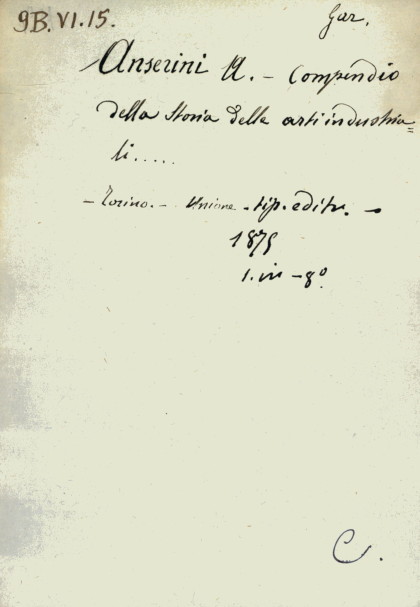 9B.VI.15.
Gar.
Anserini A. - Compendio
della Storia delle arti industria=
li.....
- Torino. - Unione - tip. editr. -
1875
1. in - 8°
C.